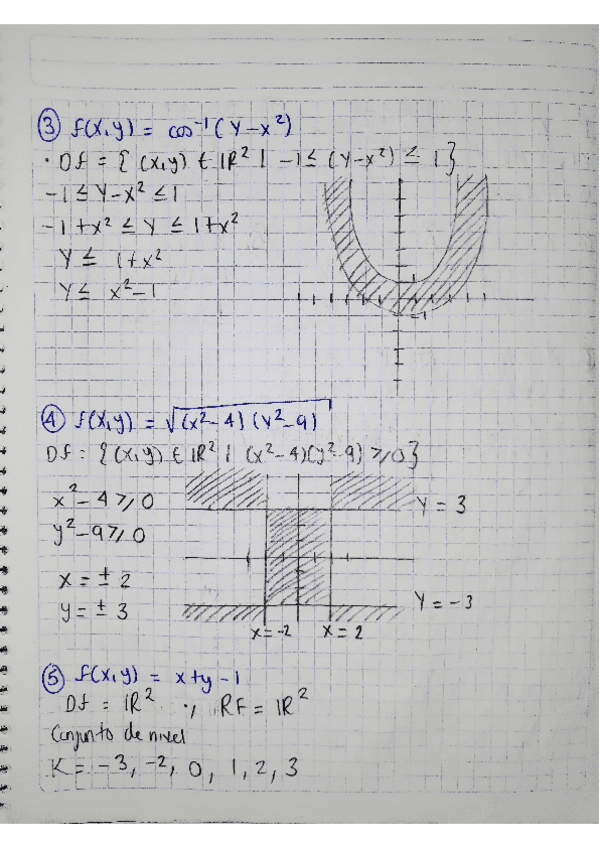 ③ f(x,y) = cos⁻¹(y-x²)
· Df = { (x,y) ∈ ℝ² | -1 ≤ (y-x²) ≤ 1 }
-1 ≤ y-x² ≤ 1
-1+x² ≤ y ≤ 1+x²
y ≤ 1+x²
y ≤ x²-1
1
-1
④ f(x,y) = √(x²-4)(y²-9)
Df = { (x,y) ∈ ℝ² | (x²-4)(y²-9) ≥ 0 }
x²-4 ≥ 0
y²-9 ≥ 0
x = ± 2
y = ± 3
y = 3
y = -3
x = -2
x = 2
⑤ f(x,y) = x+y-1
Df = ℝ² ·, RF = ℝ²
Conjunto de nivel
K = -3, -2, 0, 1, 2, 3